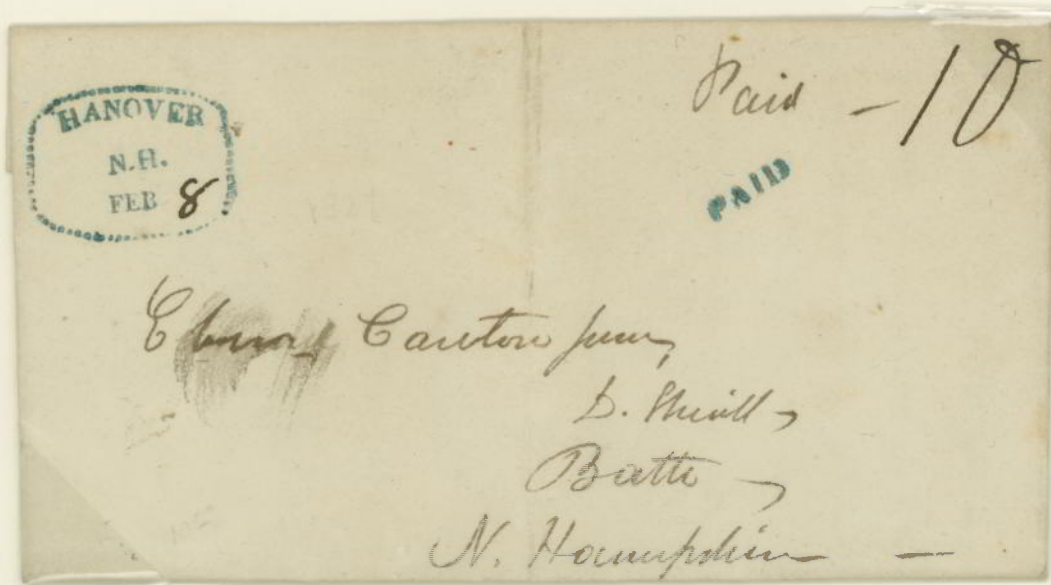 HANOVER
N.H.
FEB 8
Paid - 10
PAID
Carlton Junr,
D. Sheriff,
Bath,
N. Hampshire —